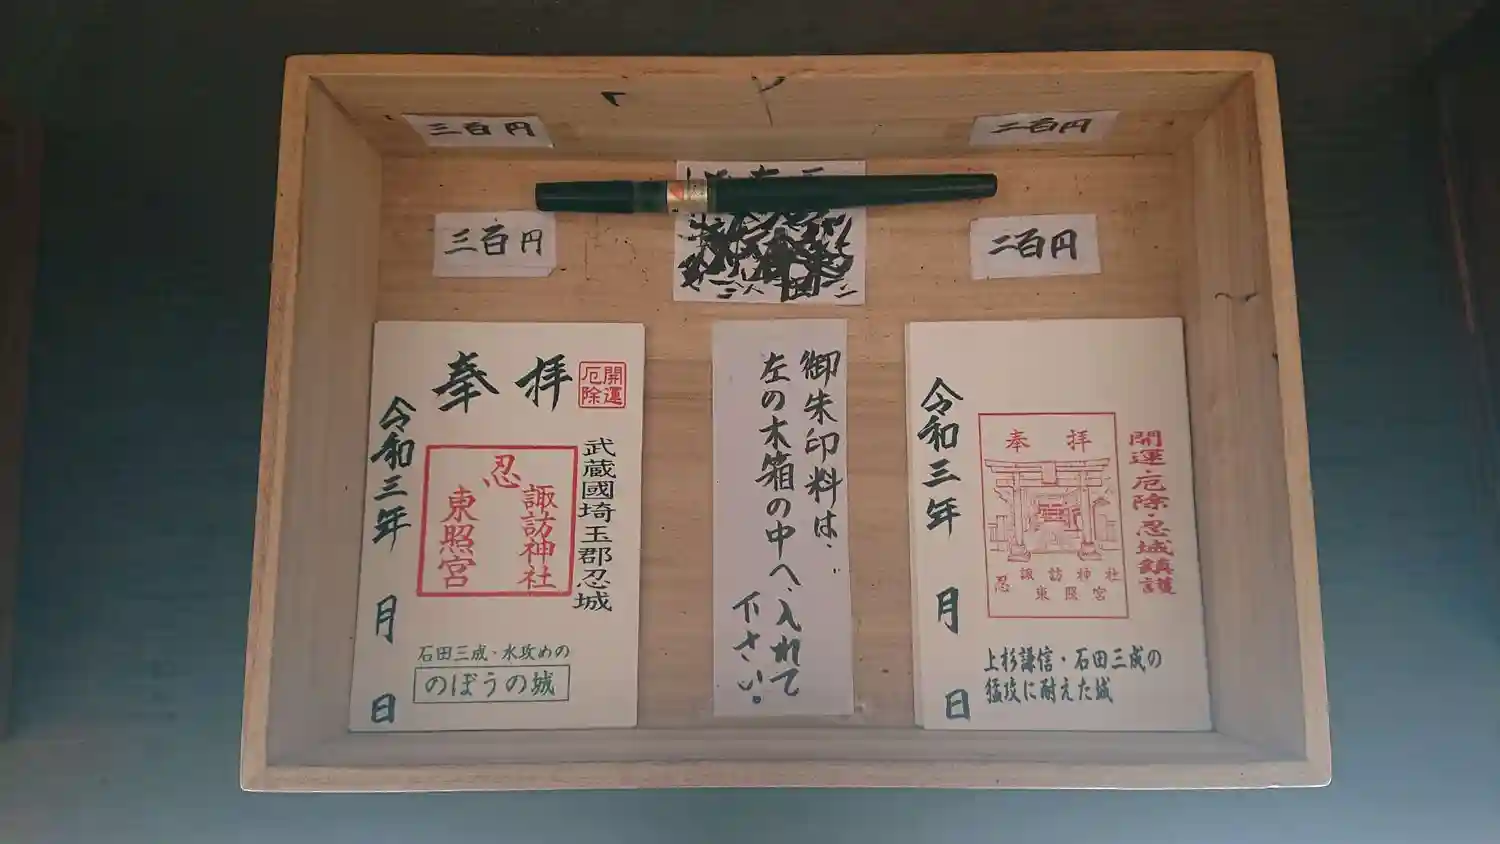 三百円
二百円
三百円
二百円
奉拝
開運
厄除
武蔵國埼玉郡忍城
忍
諏訪神社
東照宮
令和三年 月 日
石田三成・水攻めの
のぼうの城
御朱印料は、
左の木箱の中へ、入れて
下さい。
奉拝
開運・厄除・忍城鎮護
忍
諏訪神社
東照宮
令和三年 月 日
上杉謙信・石田三成の
猛攻に耐えた城